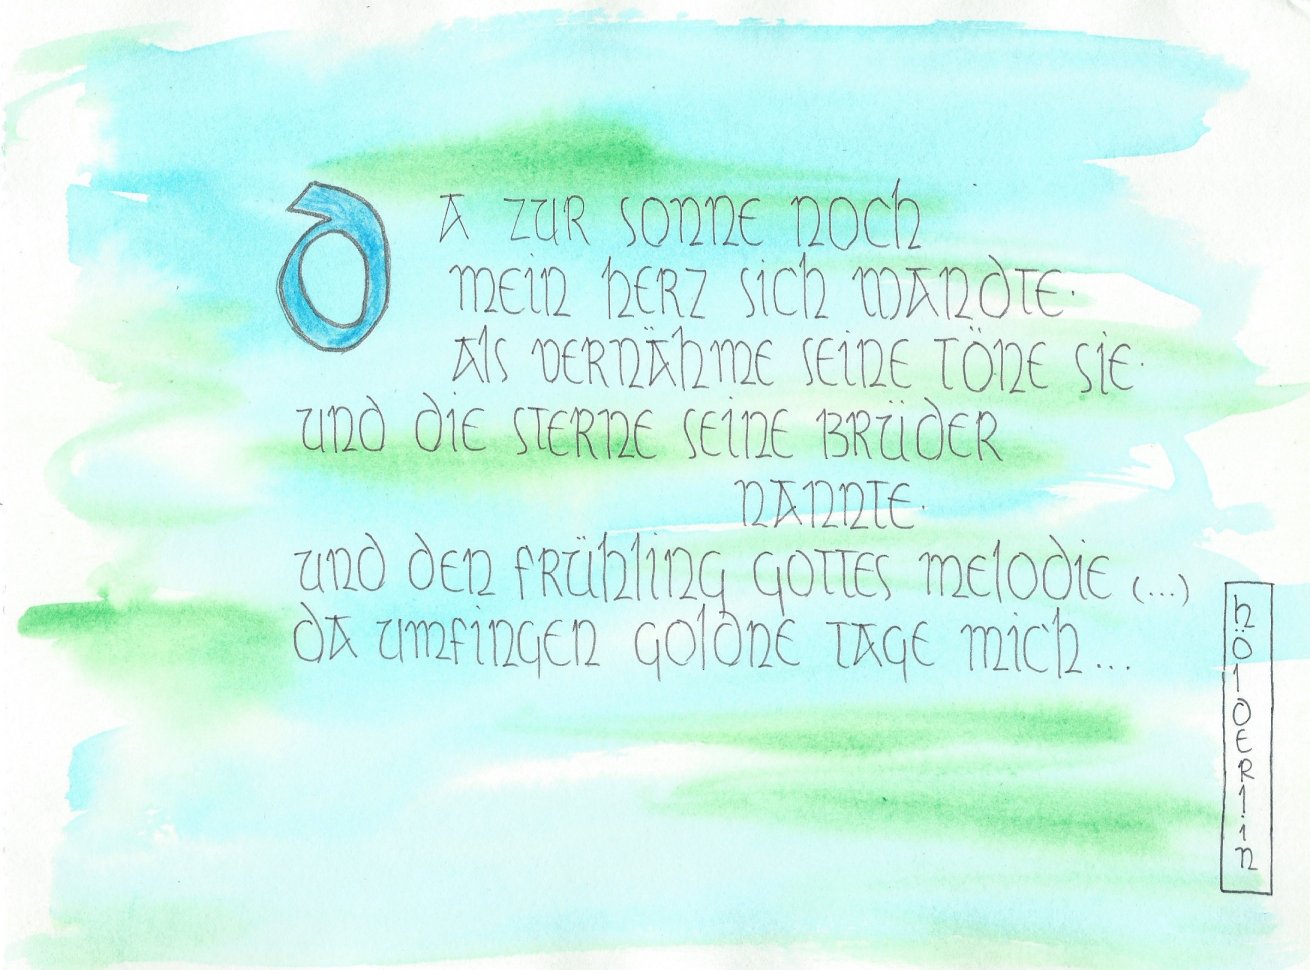 Da zur Sonne noch
mein Herz sich wandte·
als vernähme seine Töne sie·
und die Sterne seine Brüder
nannte·
und den Frühling Gottes Melodie (...)
da umfingen goldne Tage mich...
Hölderlin